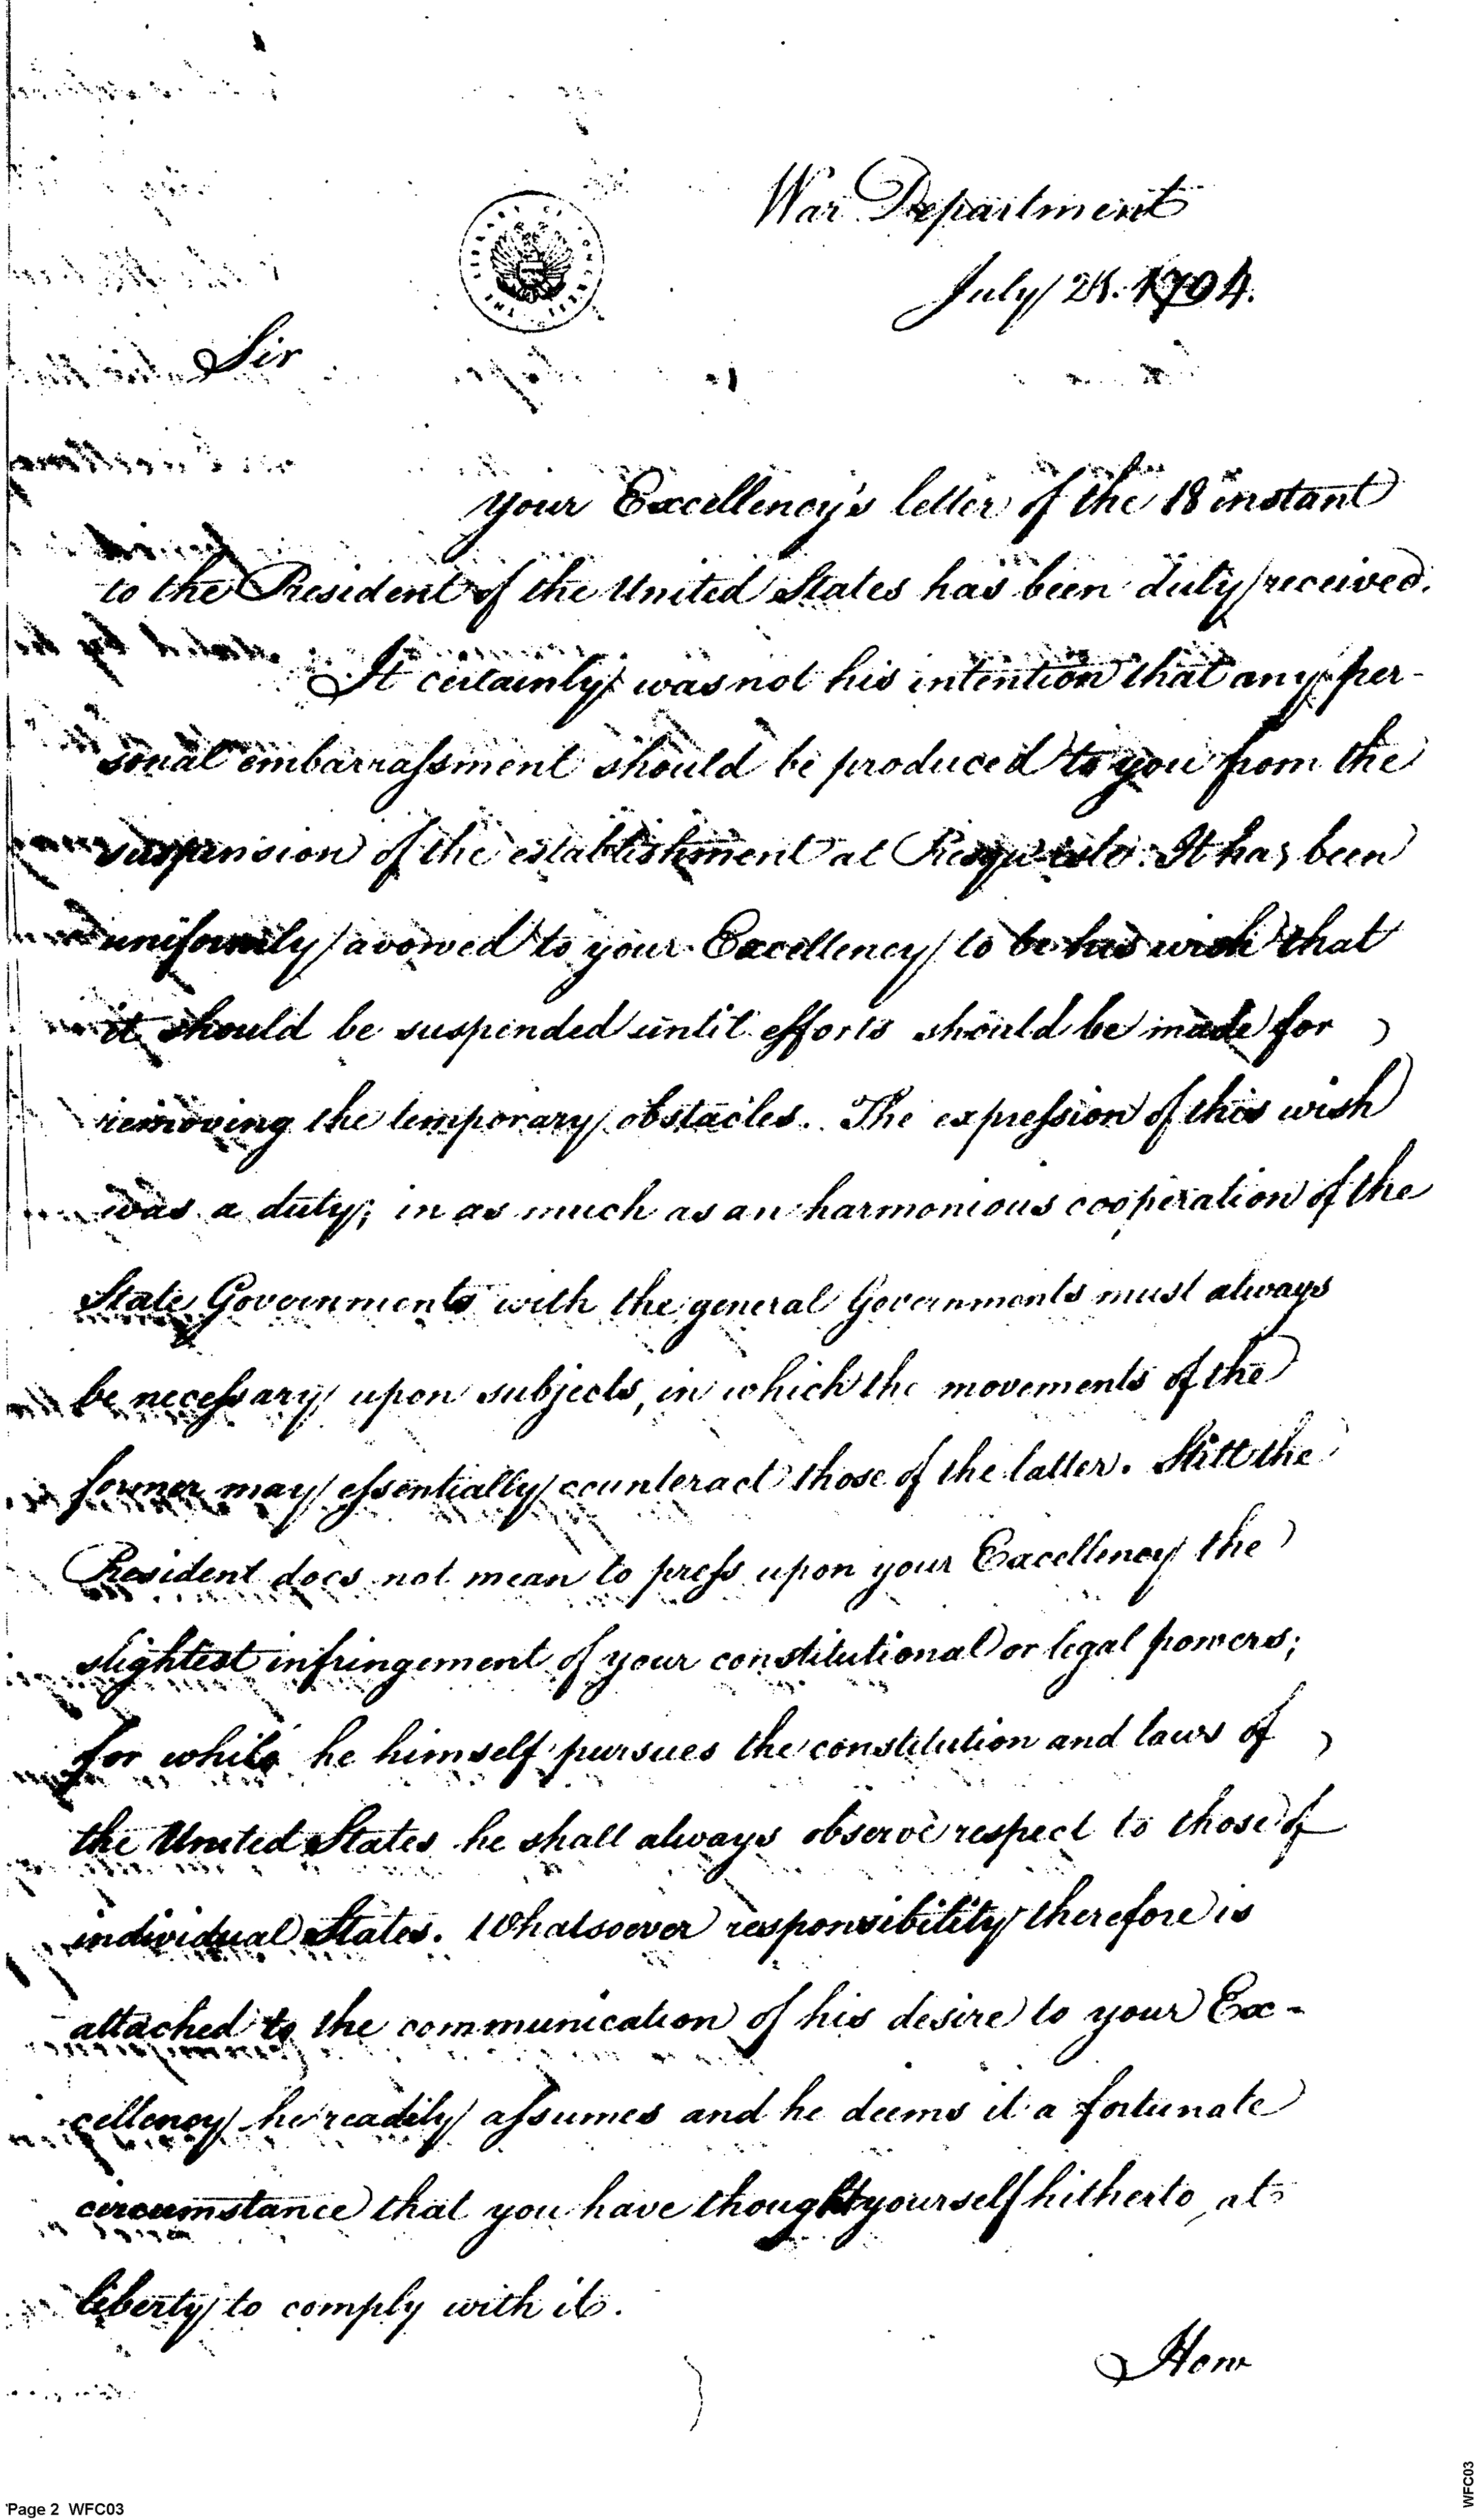 War Department
July 21. 1794.
Sir
your Excellency's letter of the 18 instant
to the President of the United States has been duly received.
It certainly was not his intention that any per-
sonal embarrassment should be produced to you from the
suspension of the establishment at Presqu'isle. It has been
uniformly avowed to your Excellency to be his wish that
it should be suspended until efforts should be made for
removing the temporary obstacles. The expression of this wish
was a duty; in as much as an harmonious cooperation of the
State Governments with the general Governments must always
be necessary upon subjects, in which the movements of the
former may essentially counteract those of the latter. Still the
President does not mean to press upon your Excellency the
slightest infringement of your constitutional or legal powers;
for while he himself pursues the constitution and laws of
the United States he shall always observe respect to those of
individual States. Whatsoever responsibility therefore is
attached to the communication of his desire to your Ex-
cellency he readily assumes and he deems it a fortunate
circumstance that you have thought yourself hitherto, at
liberty to comply with it.
How
Page 2 WFC03
WFC03